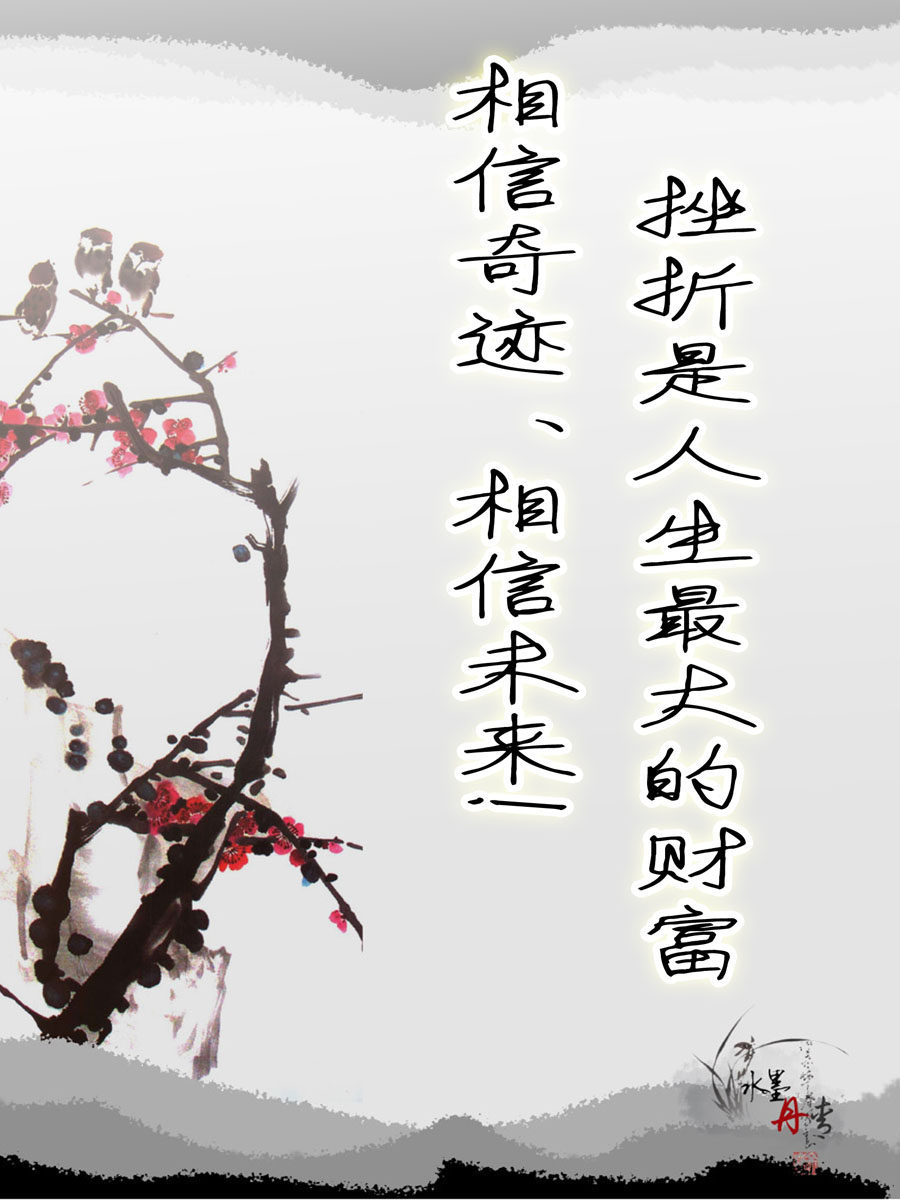 挫折是人生最大的财富
相信奇迹、相信未来!
水墨
丹青